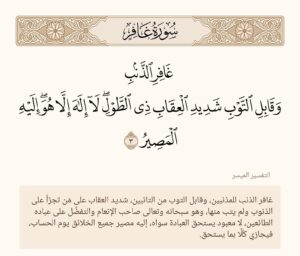 سُورَةُ غَافِرٍ
غَافِرِ ٱلذَّنۢبِ
وَقَابِلِ ٱلتَّوۡبِ شَدِيدِ ٱلۡعِقَابِ ذِي ٱلطَّوۡلِۖ لَآ إِلَٰهَ إِلَّا هُوَۖ إِلَيۡهِ
ٱلۡمَصِيرُ ٣
التفسير الميسر
غافر الذنب للمذنبين، وقابل التوب من التائبين، شديد العقاب على من تجرَّأ على
الذنوب ولم يتب منها، وهو سبحانه وتعالى صاحب الإنعام والتفضُّل على عباده
الطائعين، لا معبود يستحق العبادة سواه، إليه مصير جميع الخلائق يوم الحساب،
فيجازي كلًّا بما يستحق.